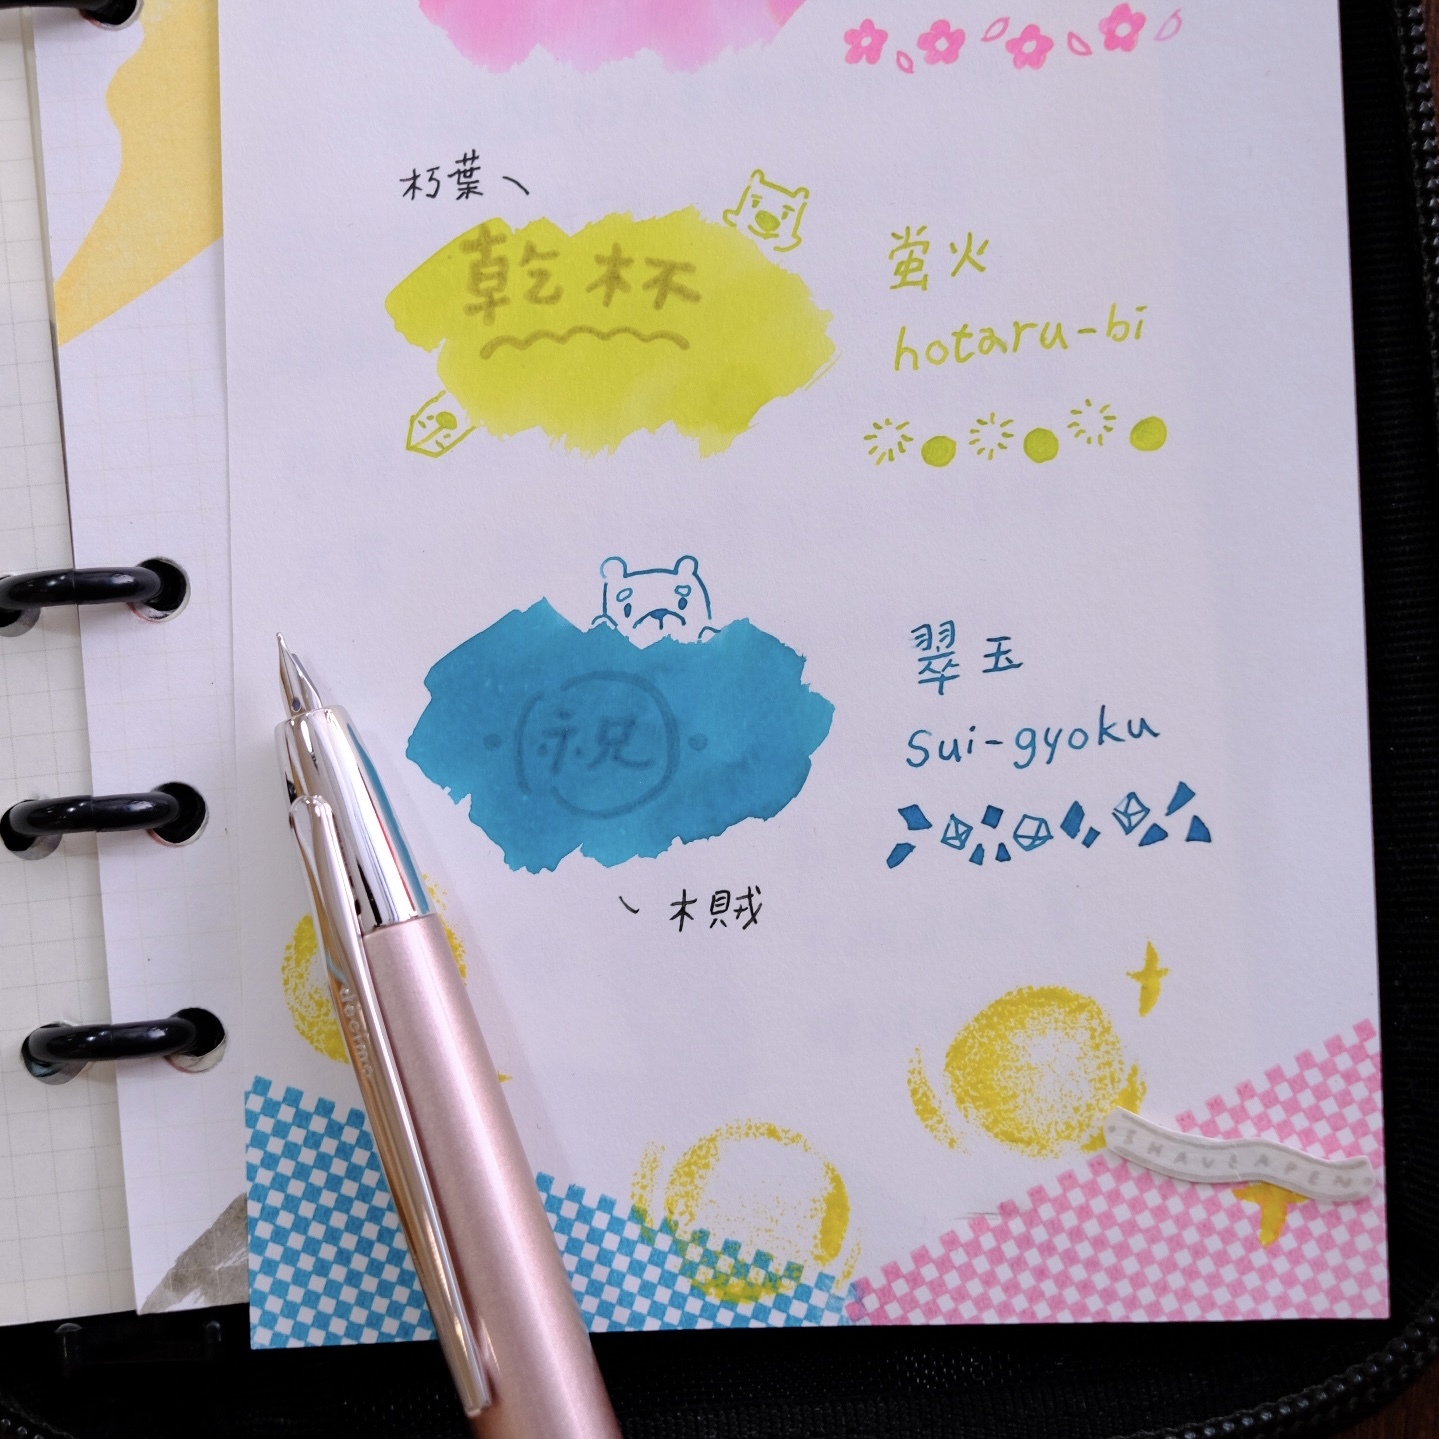 朽葉
乾杯
螢火
hotaru-bi
祝
翠玉
sui-gyoku
木賊
decimo
I HAVE A PEN